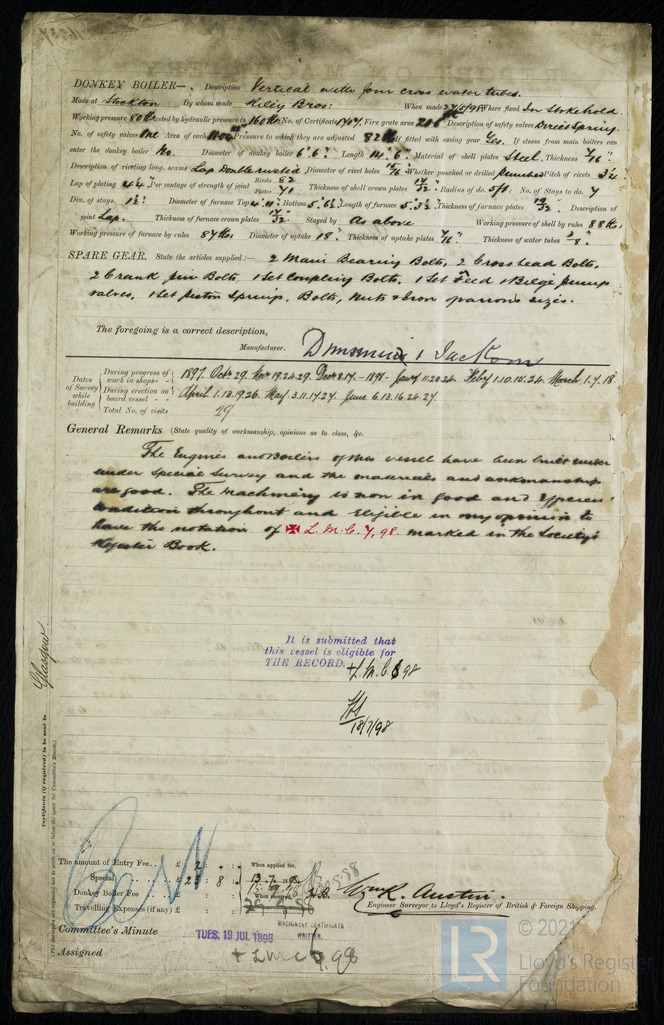 DONKEY BOILER— Description Vertical with four cross water tubes.
Made at Stockton By whom made Riley Bros: When made 27/5/98 Where fixed In Stokehold.
Working pressure 80 lbs tested by hydraulic pressure to 160 lbs No. of Certificate 1707. Fire grate area Description of safety valves Direct Spring.
No. of safety valves One Area of each Pressure to which they are adjusted 82 lbs If fitted with easing gear Yes. If steam from main boilers can
enter the donkey boiler No. Diameter of donkey boiler 6'.6" Length 14'.6" Material of shell plates Steel. Thickness 7/16"
Description of riveting long. seams Lap Double riveted Diameter of rivet holes 15/16" Whether punched or drilled punched Pitch of rivets 3¼
Lap of plating 4¼" Per centage of strength of joint Rivets 82 Plates 71 Thickness of shell crown plates 17/32" Radius of do. 5ft. No. of Stays to do. 7
Dia. of stays. 1½" Diameter of furnace Top 4'.11" Bottom 5'.6½" Length of furnace 5'.3½" Thickness of furnace plates 19/32" Description of
joint Lap. Thickness of furnace crown plates 17/32" Stayed by As above Working pressure of shell by rules 88 lbs.
Working pressure of furnace by rules 87 lbs Diameter of uptake 18" Thickness of uptake plates 7/16" Thickness of water tubes 3/8"
SPARE GEAR. State the articles supplied:— 2 Main Bearing Bolts, 2 Cross head Bolts,
2 Crank pin Bolts, 1 Set Coupling Bolts, 1 Set Feed & Bilge pump
valves, 1 Set piston Springs, Bolts, Nuts & Iron various sizes.
The foregoing is a correct description,
Manufacturer. Jackson
Dates of Survey while building
During progress of work in shops— 1897. Oct. 29. Nov 19.24.29. Dec 8.17.— 1898— Jany 11.20.24. Feby 1.10.15.24. March 1.7.18.
During erection on board vessel— April 1.13.19.26. May 3.11.17.27. June 6.13.16.24.27.
Total No. of visits 29
General Remarks (State quality of workmanship, opinions as to class, &c.
The Engines and Boilers of this vessel have been built under
under Special Survey and the materials and workmanship
are good. The Machinery is now in good and efficient
condition throughout and Eligible in my opinion to
have the notation of ✠ L.M.C. 7,98. marked in the Society's
Register Book.
It is submitted that
this vessel is eligible for
THE RECORD. + L.M.C. 6 98
18/7/98
Glasgow
Certificate (if required) to be sent to
(The Surveyors are requested not to write on or below the space for Committee's Minute.)
The amount of Entry Fee.. £ 2 : : When applied for,
Special .. £ 23 : 8 : 13.7.98
Donkey Boiler Fee .. £ : : When received,
Travelling Expenses (if any) £ : :
Wm R. Austin.
Engineer Surveyor to Lloyd's Register of British & Foreign Shipping.
Committee's Minute
TUES. 19 JUL 1898
MACHINERY CERTIFICATE
WRITTEN.
Assigned + LMC 6,98
© 2021
LR
Lloyd's Register
Foundation